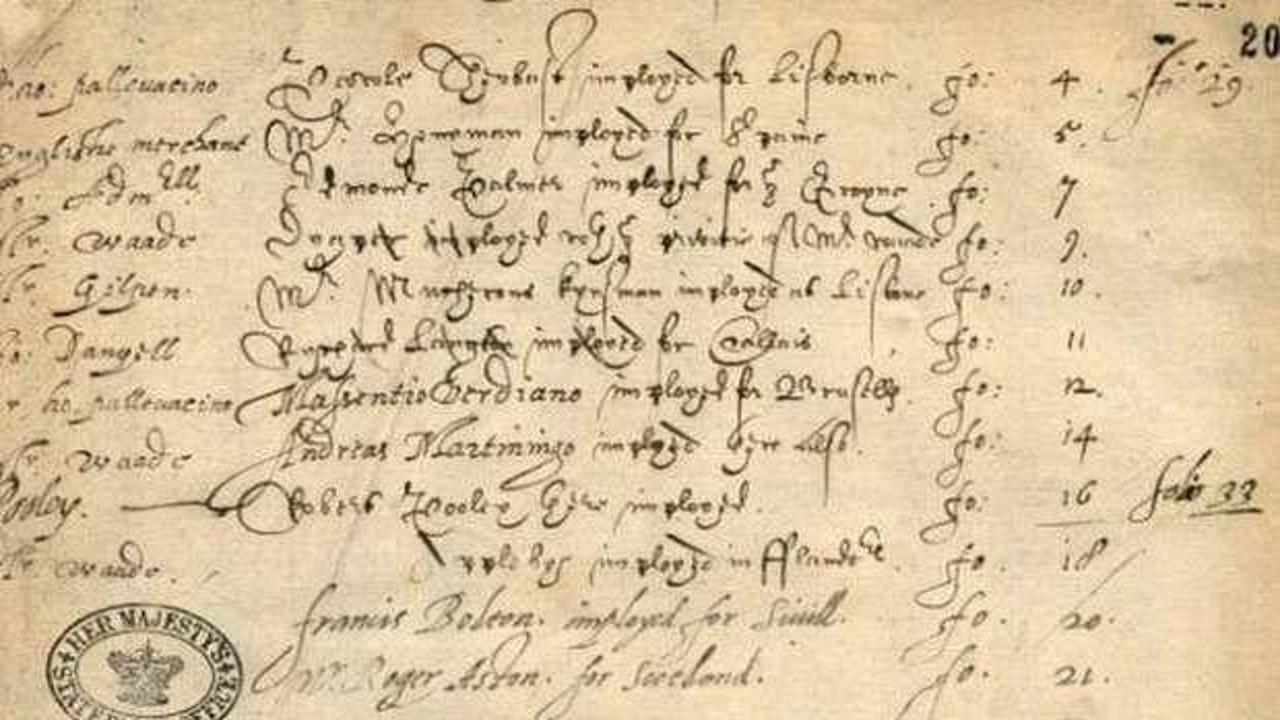 20
ho: pallevacino employed for Lisborne. fo: 4. fo: 29
Englishe merchant Mr. Honyman imployed for Spaine fo: 5.
Edmonde Palmer imployed for ye Groyne. fo: 7
Waade imployed Mr waade fo: 9.
Gilpen. Mr. kynsman imployed at Lisbone fo: 10.
Danyell imployed for Callais fo: 11
ho. pallevacino Massentio Verdiano imployed for Brusells. fo: 12.
Waade Andreas Martiningo imployed fo: 14
Pooley. Robert Pooley here imployed. fo: 16 folio 22
waade. imployed in Flanders. fo: 18
francis Bolton. imployed for Sivill. fo. 20.
Mr Roger Aston. for Scotland. fo. 21.
HER MAJESTY'S STATE PAPER OFFICE